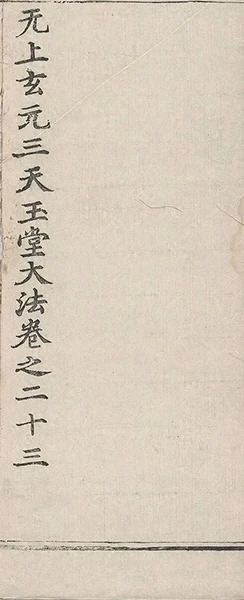 无上玄元三天玉堂大法卷之二十三